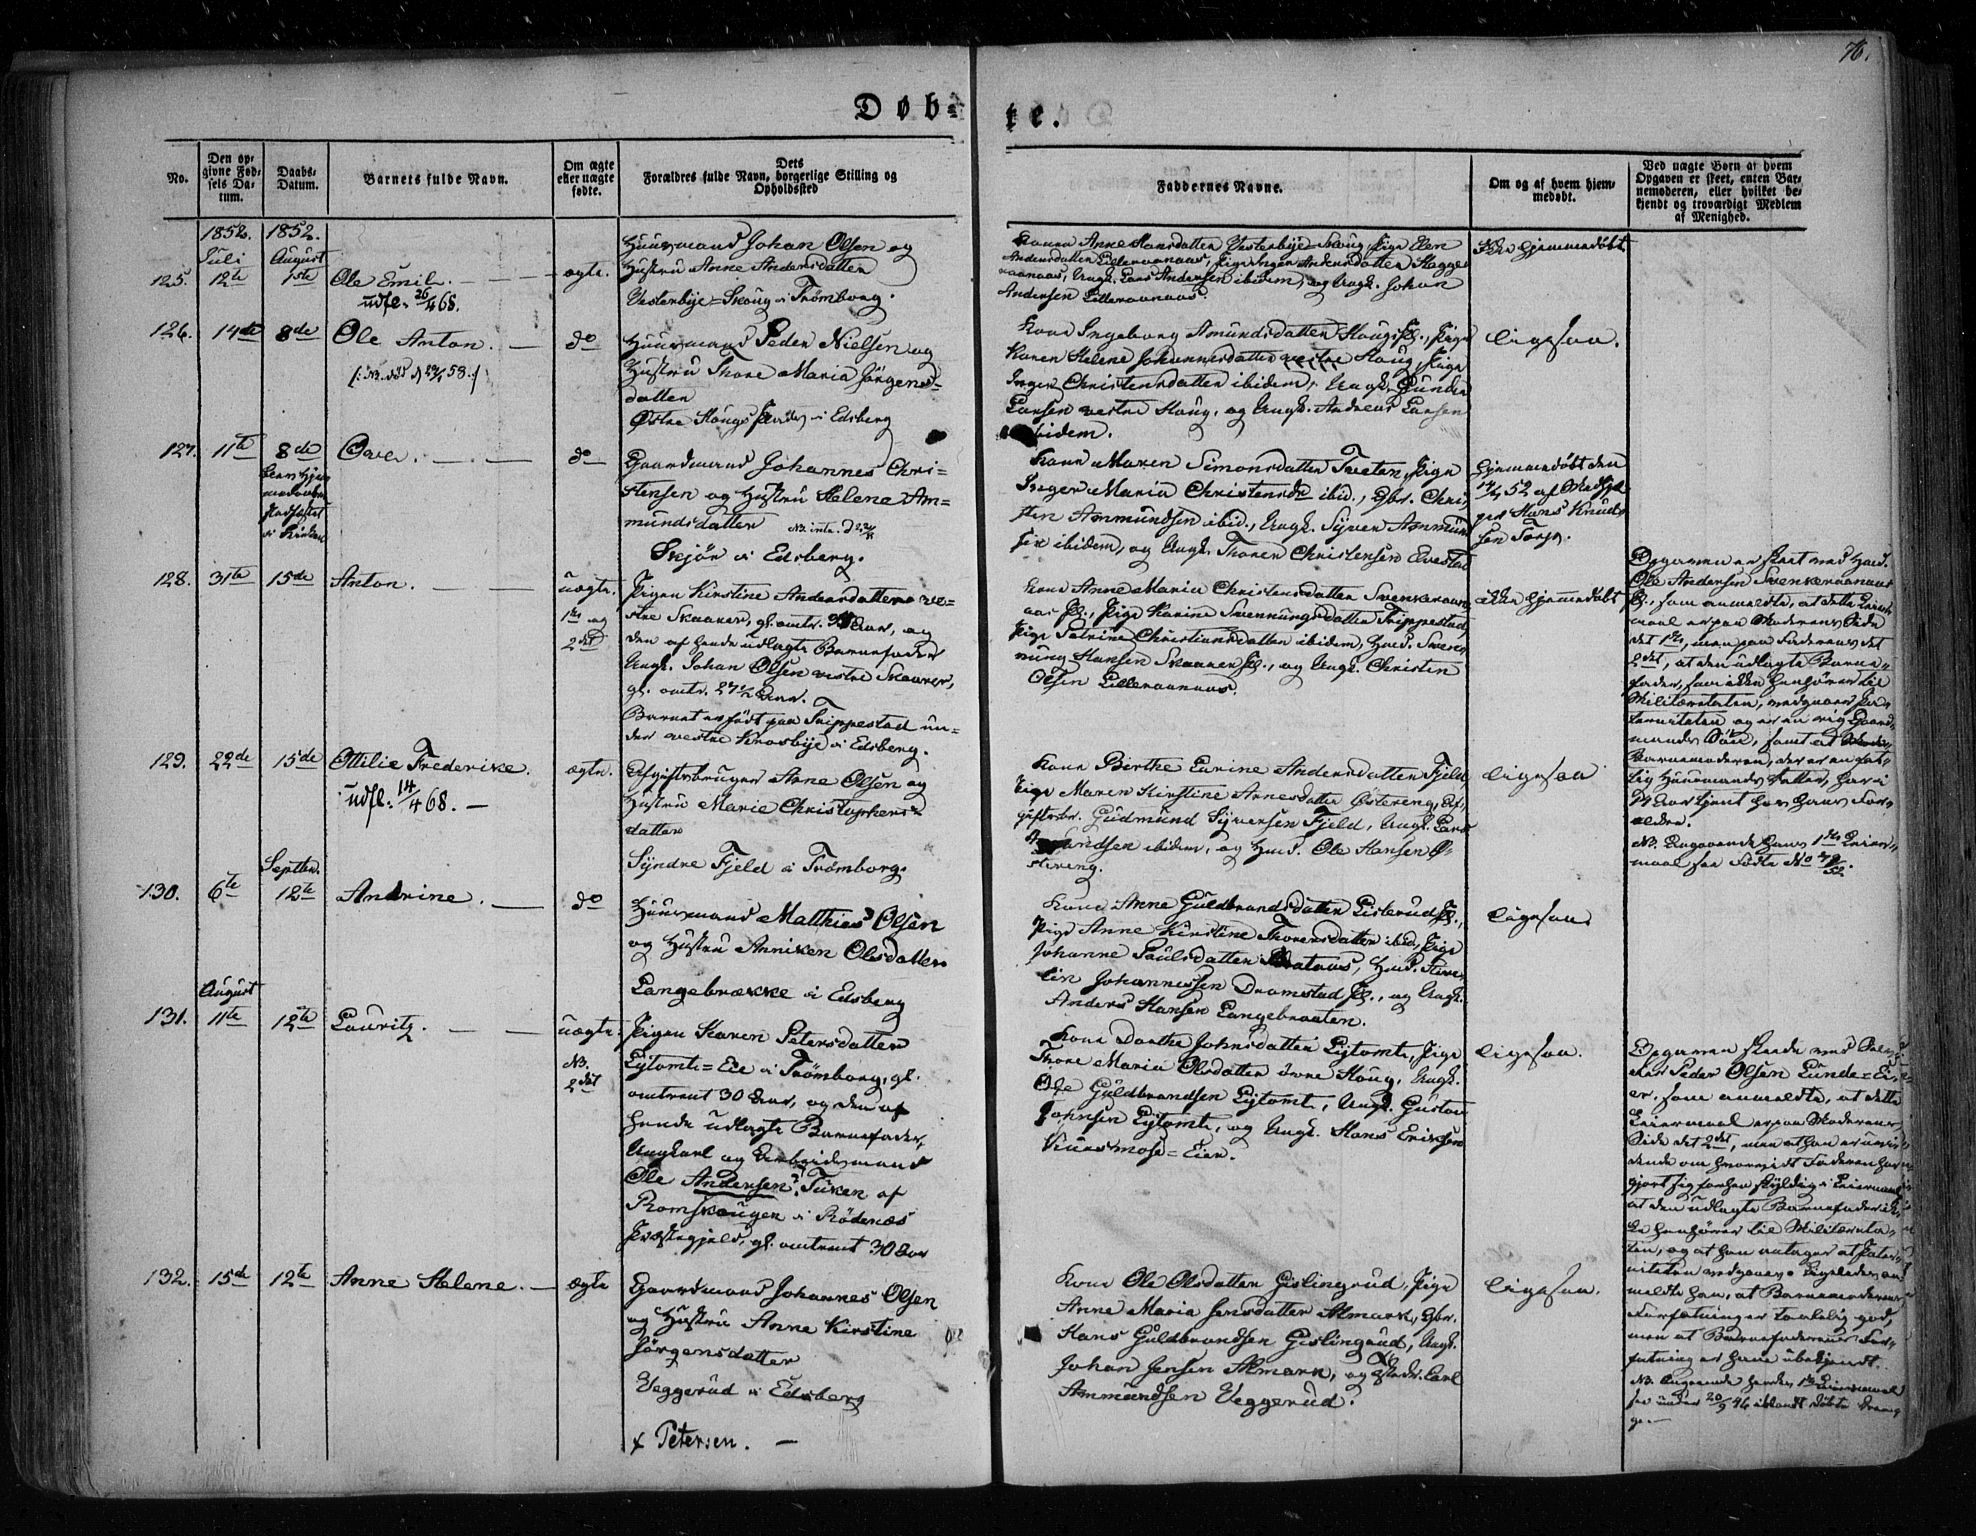 76.
Døb=
te.
No.
Den op=
givne Fød=
sels Da=
tum.
Daabs=
Datum.
Barnets fulde Navn.
Om ægte
eller uægte
født.
Dets
Forældres fulde Navn, borgerlige Stilling og
Opholdssted
Faddernes Navne.
Om og af hvem hjem=
medøbt.
Ved uægte Børn af hvem
Opgaven er skeet, enten Bar=
nemoderen, eller hvilket be=
kjendt og troværdigt Medlem
af Menighed.
1852. 1852.
Juli August
125. 12te 1ste Ole Emil. — — ægte.
udfl. 26/4 68.
Huusmand Johan Olsen og
Hustru Anne Andersdatter
Vesterbye=Skoug i Trømborg.
Kone Anne Hansdatter Vesterbye=Skoug, Pige Elen
Andersdatter Lilleraanaas, Pige Inger Andersdatter
raanaas, Ungk. Lars Andersen ibidem, og Ungk. Johan
Andersen Lilleraanaas.
Ikke hjemmedøbt
126. 14de 8de Ole Anton. — do
Huusmand Peder Nielsen og
Hustru Thore Maria Jörgens=
datter
Østre Houg i Edsberg
Kone Ingeborg Amundsdatter Pige
Karen Helene Johannesdatter vestre Houg, Pige
Inger Christensdatter ibidem, Ungk. Gunder
Larsen vestre Houg, og Ungk. Andreas Larsen
ibidem.
ligesaa.
127. 11te 8de Over. — — do
Gaardmand Johannes Chri=
stensen og Hustru Helene Am=
mundsdatter
Skjør i Edsberg.
Kone Maren Simonsdatter Tveten, Pige
Inger Maria Christensdr ibid., Gbr. Chri=
sten Ammundsen ibid., Ungk. Syver Ammund=
sen ibidem, og Ungk. Thoren Christensen
Hjemmedøbt den
52 af
Hans Knud=
sen Torp.
128. 31te 15de Anton. — — uægte.
1ste og
2det
Pigen Kirstine Andersdatter ve=
stre Skaarer, gl. omtr. Aar, og
den af hende udlagte Barnefader
Ungk. Johan Olsen vestre Skaarer,
gl. omtr. 27½ Aar.
Barnet er født paa Trippestad un=
der vestre Krosbye i Edsberg.
Kone Anne Maria Christensdatter
Pige Karine Svenningsdatter Trippestad,
Pige Petrine Christiansdatter ibidem, Huusm.
Hansen Skaarer og Ungk. Christen
Olsen Lilleraanaas.
ikke hjemmedøbt
Opgaven er skeet ved
Ole Andersen
som anmeldte, at dette Leier=
maal er paa Moderens Side
det 1ste, men paa Faderens det
2det, at den udlagte Barne=
fader, som ikke henhører til
Militæretaten, vedgaaer Pa=
terniteten og er en rig Gaard=
mands Søn, samt at
Barnemoderen, der er en fat=
tig Huusmands Datter, har i
Aar tjent hos hans For=
ældre.
129. 22de 15de Ottilie Frederikke. ægte.
udfl. 14/4 68. —
Arne Olsen og
Hustru Marie Christophers=
datter
Syndre Fjeld i Trømborg.
Kone Birthe Larine Andersdatter Fjeld,
Pige Maren Kirstine Arnesdatter Østereng,
Gudmund Syversen Fjeld, Ungk. Lars
ibidem, og Huusm. Ole Hansen Ø=
stereng.
ligesaa
Septbr.
130. 6te 12te Andrine. — do
Huusmand Matthies Olsen
og Hustru Anniken Olsdatter
Langebrække i Edsberg
Kone Anne Guldbrandsdatter
Pige Anne Kirstine Thorersdatter ibid., Pige
Johanne Poulsdatter
Johannessen Dramstad og Ungk.
Anders Hansen Langebraaten.
ligesaa
August
131. 11te 12te Lauritz. — — uægte.
NB.
2det
Pigen Karen Petersdatter
Lytomt=Eie i Trømborg, gl.
omtrent 30 Aar, og den af
hende udlagte Barnefader,
Ungkarl og Arbeidsmand
Ole Andersen Tuken af
Romskougen i Rødenæs
Præstegjeld, gl. omtrent 30 Aar
Kone Dorthe Johnsdatter Lytomt, Pige
Thore Maria Olsdatter øvre Houg, Ungk.
Ole Guldbrandsen Lytomt, Ungk. Gustav
Johnsen Lytomt, og Ungk. Hans Eriksen
Kuursmose=Eier.
ligesaa.
Opgaven skeede ved
Peder Olsen Lunde=Ei=
er, som anmeldte, at dette
Leiermaal er paa Moderens
Side det 2det, men at han er uvi=
dende om hvorvidt Faderen har
gjort sig forhen skyldig i Leiermaal,
at den udlagte Barnefader ik=
ke henhører til Militæreta=
ten, og at han antager at Pater=
niteten vedgaaes. Ligeledes an=
meldte han, at Barnemoderens
Forfatning er taalelig god,
men at Barnefaderens For=
fatning er ham ubekjendt.
132. 15de 12te Anne Helene. — ægte
Gaardmand Johannes Olsen
og Hustru Anne Kirstine
Jørgensdatter
Veggerud i Edsberg
x Petersen. —
Kone Ole Olsdatter Gislingrud, Pige
Anne Maria Jensdatter Almark, Gbr.
Hans Guldbrandsen Gislingrud, Ungk.
Johan Jensen Almark, og Carl
Ammundsen Veggerud.
ligesaa.